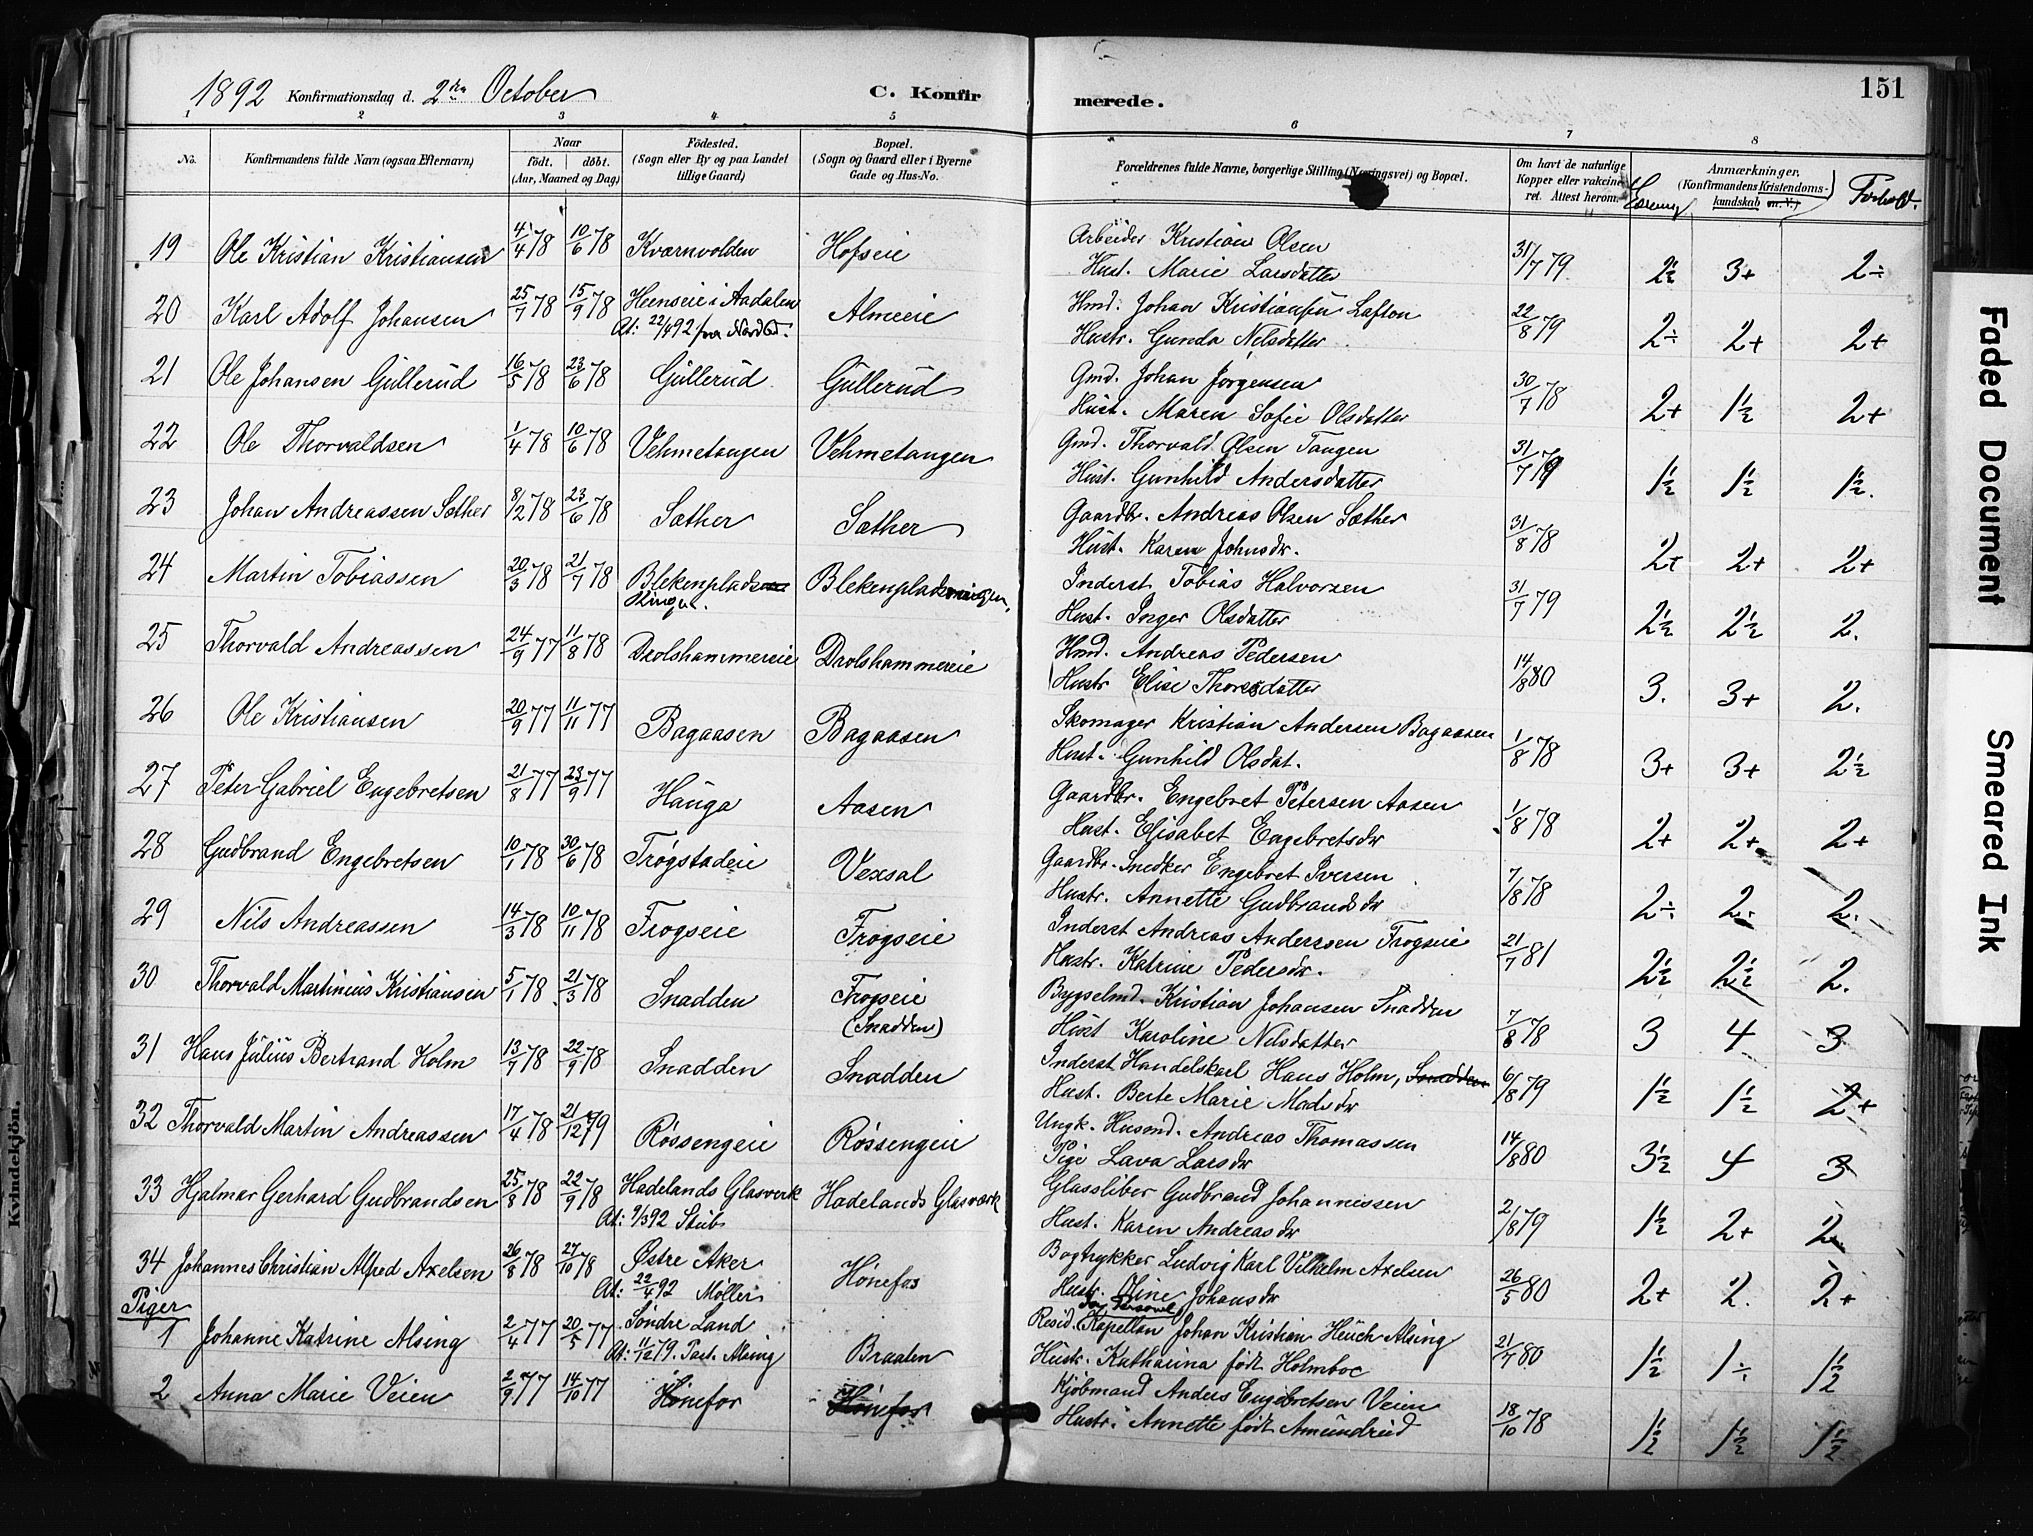 1892 Konfirmationsdag d. 2den October C. Konfirmerede. 151
1 2 3 4 5 6 7 8
No. Konfirmandens fulde Navn (ogsaa Efternavn) Naar født. døbt. (Aar, Maaned og Dag) Fødested. (Sogn eller By og paa Landet tillige Gaard) Bopæl. (Sogn og Gaard eller i Byerne Gade og Hus-No. Forældrenes fulde Navne, borgerlige Stilling (Næringsvei) og Bopæl. Om havt de naturlige Kopper eller vaccineret. Attest herom. Anmærkninger. (Konfirmandens Kristendomskundskab m. V.) Forhold.
19 Ole Kristian Kristiansen 4/4 78 10/6 78 Kværnvolden Hofseie Arbeider Kristian Olsen 31/7 79 2½ 3+ 2÷
Hust. Marie Larsdatter
20 Karl Adolf Johansen 25/7 78 15/9 78 Heenseie i Aadalen Almeeie Hmd. Johan Kristiansen Lafton 22/8 79 2÷ 2+ 2+
Hustr. Gunda Nilsdatter
21 Ole Johansen Gullerud 16/5 78 23/6 78 Gullerud Gullerud Gmd. Johan Jørgensen 30/7 78 2+ 1½ 2+
Hust. Maren Sofie Olsdatter
22 Ole Thorvaldsen 1/4 78 10/6 78 Vehmetangen Vehmetangen Gmd. Thorvald Olsen Tangen 31/7 79 1½ 1½ 1½.
Hust. Gunhild Andersdatter
23 Johan Andreassen Sæther 8/2 78 23/6 78 Sæther Sæther Gaardbr. Andreas Olsen Sæther 31/8 78 2+ 2+ 2+
Hust. Karen Johnsdr.
24 Martin Tobiassen 20/3 78 21/7 78 Blekenplads Blekenplads Inderst Tobias Halvorsen 31/7 79 2½ 2½ 2.
Hust. Inger Olsdatter
25 Thorvald Andreassen 24/9 77 11/8 78 Drolshammereie Drolshammereie Hmd. Andreas Pedersen 14/8 80 3. 3+ 2.
Hustr Elise Thorsdatter
26 Ole Kristiansen 20/9 77 11/11 77 Bagaasen Bagaasen Skomager Kristian Andersen Bagaasen 1/8 78 3+ 3+ 2½
Hust. Gunhild Olsdat.
27 Peter Gabriel Engebretsen 21/8 77 23/9 77 Hauga Aasen Gaardbr. Engebret Petersen Aasen 1/8 78 2+ 2+ 2+
Hust. Elisabet Engebretsdr
28 Gudbrand Engebretsen 10/1 78 30/6 78 Trøgstadeie Vexsal Gaardbr. Snedker Engebret Iversen 7/8 78 2÷ 2. 2.
Hustr. Annette Gudbrandsdr
29 Nils Andreassen 14/3 78 10/11 78 Frøgseie Frøgseie Inderst Andreas Anderssen Frøgseie 21/7 81 2½ 2½ 2.
Hustr. Katrine Pedersdr.
30 Thorvald Martinius Kristiansen 5/1 78 21/3 78 Snadden Frøgseie (Snadden) Bygselmd. Kristian Johansen Snadden 7/8 78 3 4 3
Hust Karoline Nilsdatter
31 Hans Julius Bertrand Holm 13/7 78 22/9 78 Snadden Snadden Inderst Handelskarl Hans Holm, Snadden 6/8 79 1½ 1½ 2+
Hust. Berte Marie Madsdr
32 Thorvald Martin Andreassen 17/4 78 21/12 79 Røssengeie Røssengeie Ungk. Husmd. Andreas Thomassen 14/8 80 3½ 4 3
Pige Lava Larsdr
33 Hjalmar Gerhard Gudbrandsen 25/8 78 22/9 78 Hadelands Glasverk Hadelands Glasværk Glassliber Gudbrand Johannessen 2/8 79 1½ 2+ 2.
At: 9/3 92 Stub Hust. Karen Andreasdr
34 Johannes Christian Alfred Axelsen 26/8 78 27/10 78 Østre Aker Hønefos Bogtrykker Ludvig Karl Vilhelm Axelsen 26/5 80 2+ 2. 2+
At: 22/4 92 Møller Hustr. Mine Johansdr
Piger
1 Johanne Katrine Alsing 2/4 77 20/5 77 Søndre Land Braaten Resid. Kapellan Johan Kristian Heuch Alsing 21/7 80 1½ 1÷ 1½
At: 11/12 79. Past. Alsing Hustr. Katharina født Holmboe
2 Anna Marie Veien 2/9 77 14/10 77 Hønefos Hønefos Kjøbmand Anders Engebretsen Veien 18/10 78 1½ 1½ 1½.
Hustr. Annette født Amundrud
Kvindekjön.
Faded Document
Smeared Ink